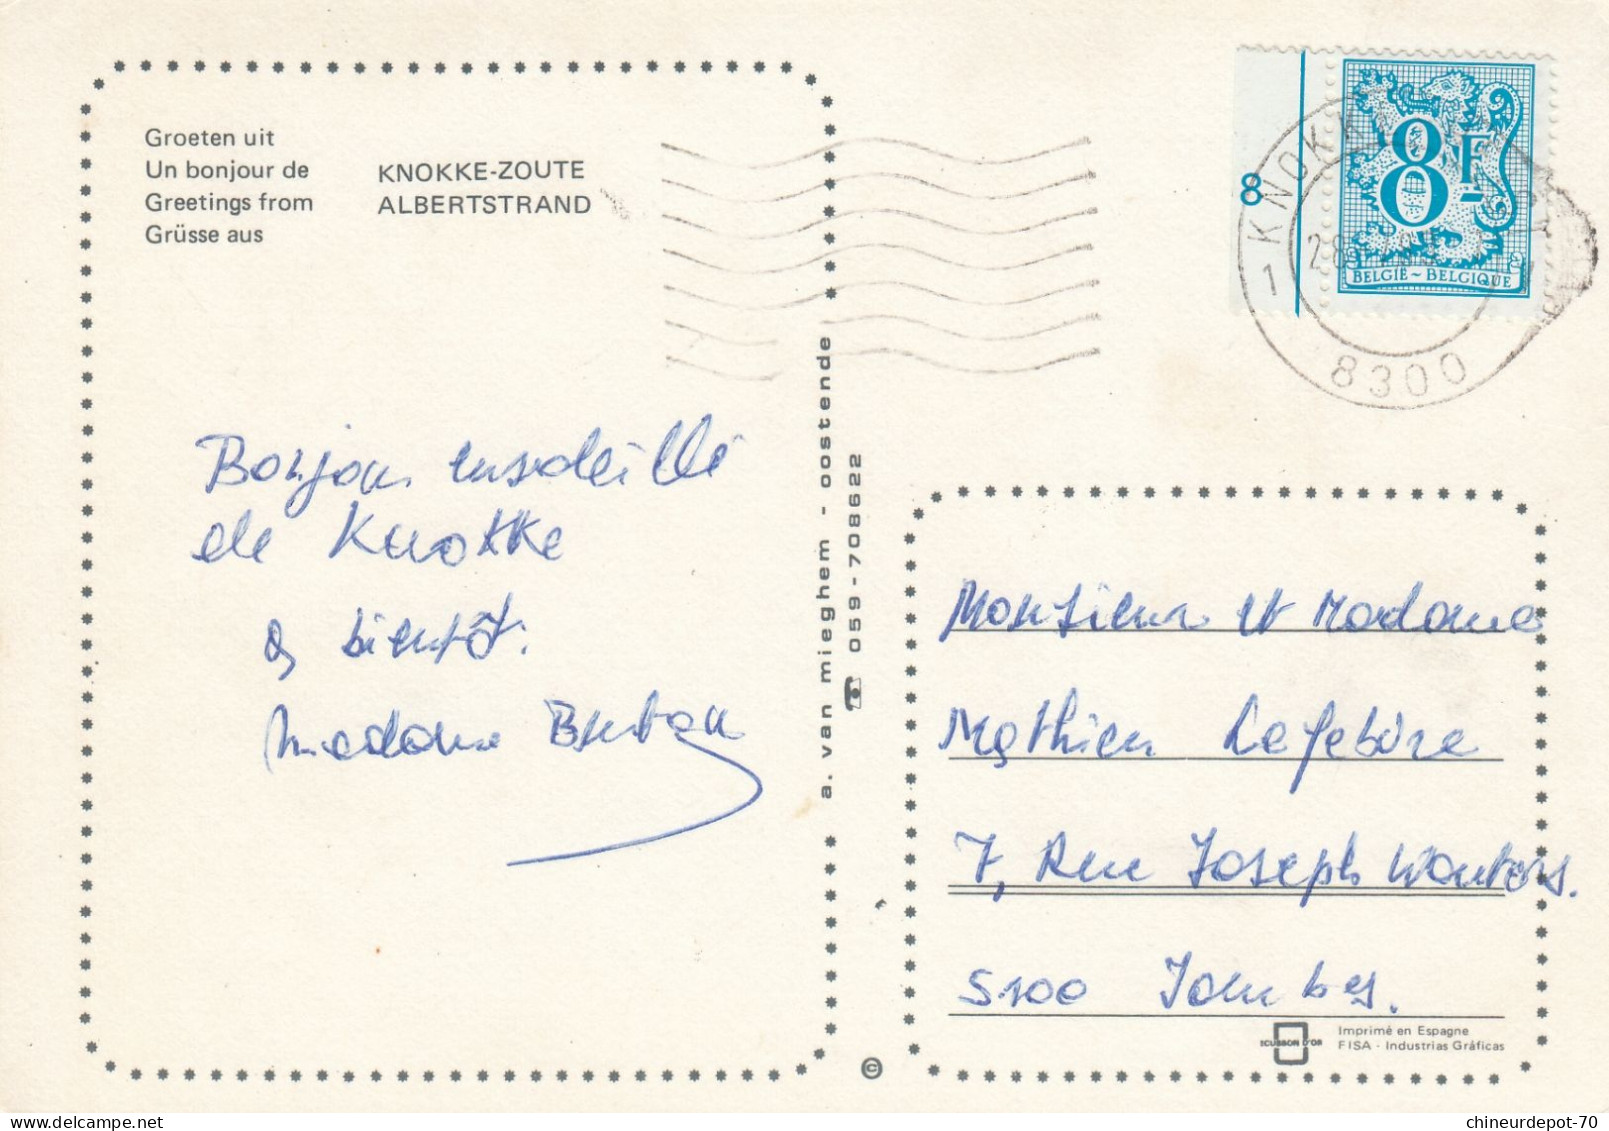 Groeten uit
Un bonjour de
Greetings from
Grüsse aus
KNOKKE-ZOUTE
ALBERTSTRAND
Bonjour ensoleillé
de Knokke
à bientôt.
Madame
a. van mieghem - oostende
059-708622
8
8F
BELGIË ~ BELGIQUE
1 KNOKKE
8300
Monsieur et Madame
Mathieu Lefebvre
7, Rue Joseph Wauters.
5100 Jambes.
ECUSSON D'OR
Imprimé en Espagne
FISA - Industrias Gráficas
©
chineurdepot-70